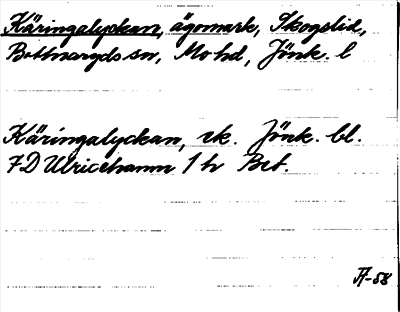 Käringalyckan, ägomark, Skogslid,
Bottnaryds sn, Mo hd, Jönk. l
Käringalyckan, ek. Jönk. bl.
7D Ulricehamn 1 h Bet.
JF-58